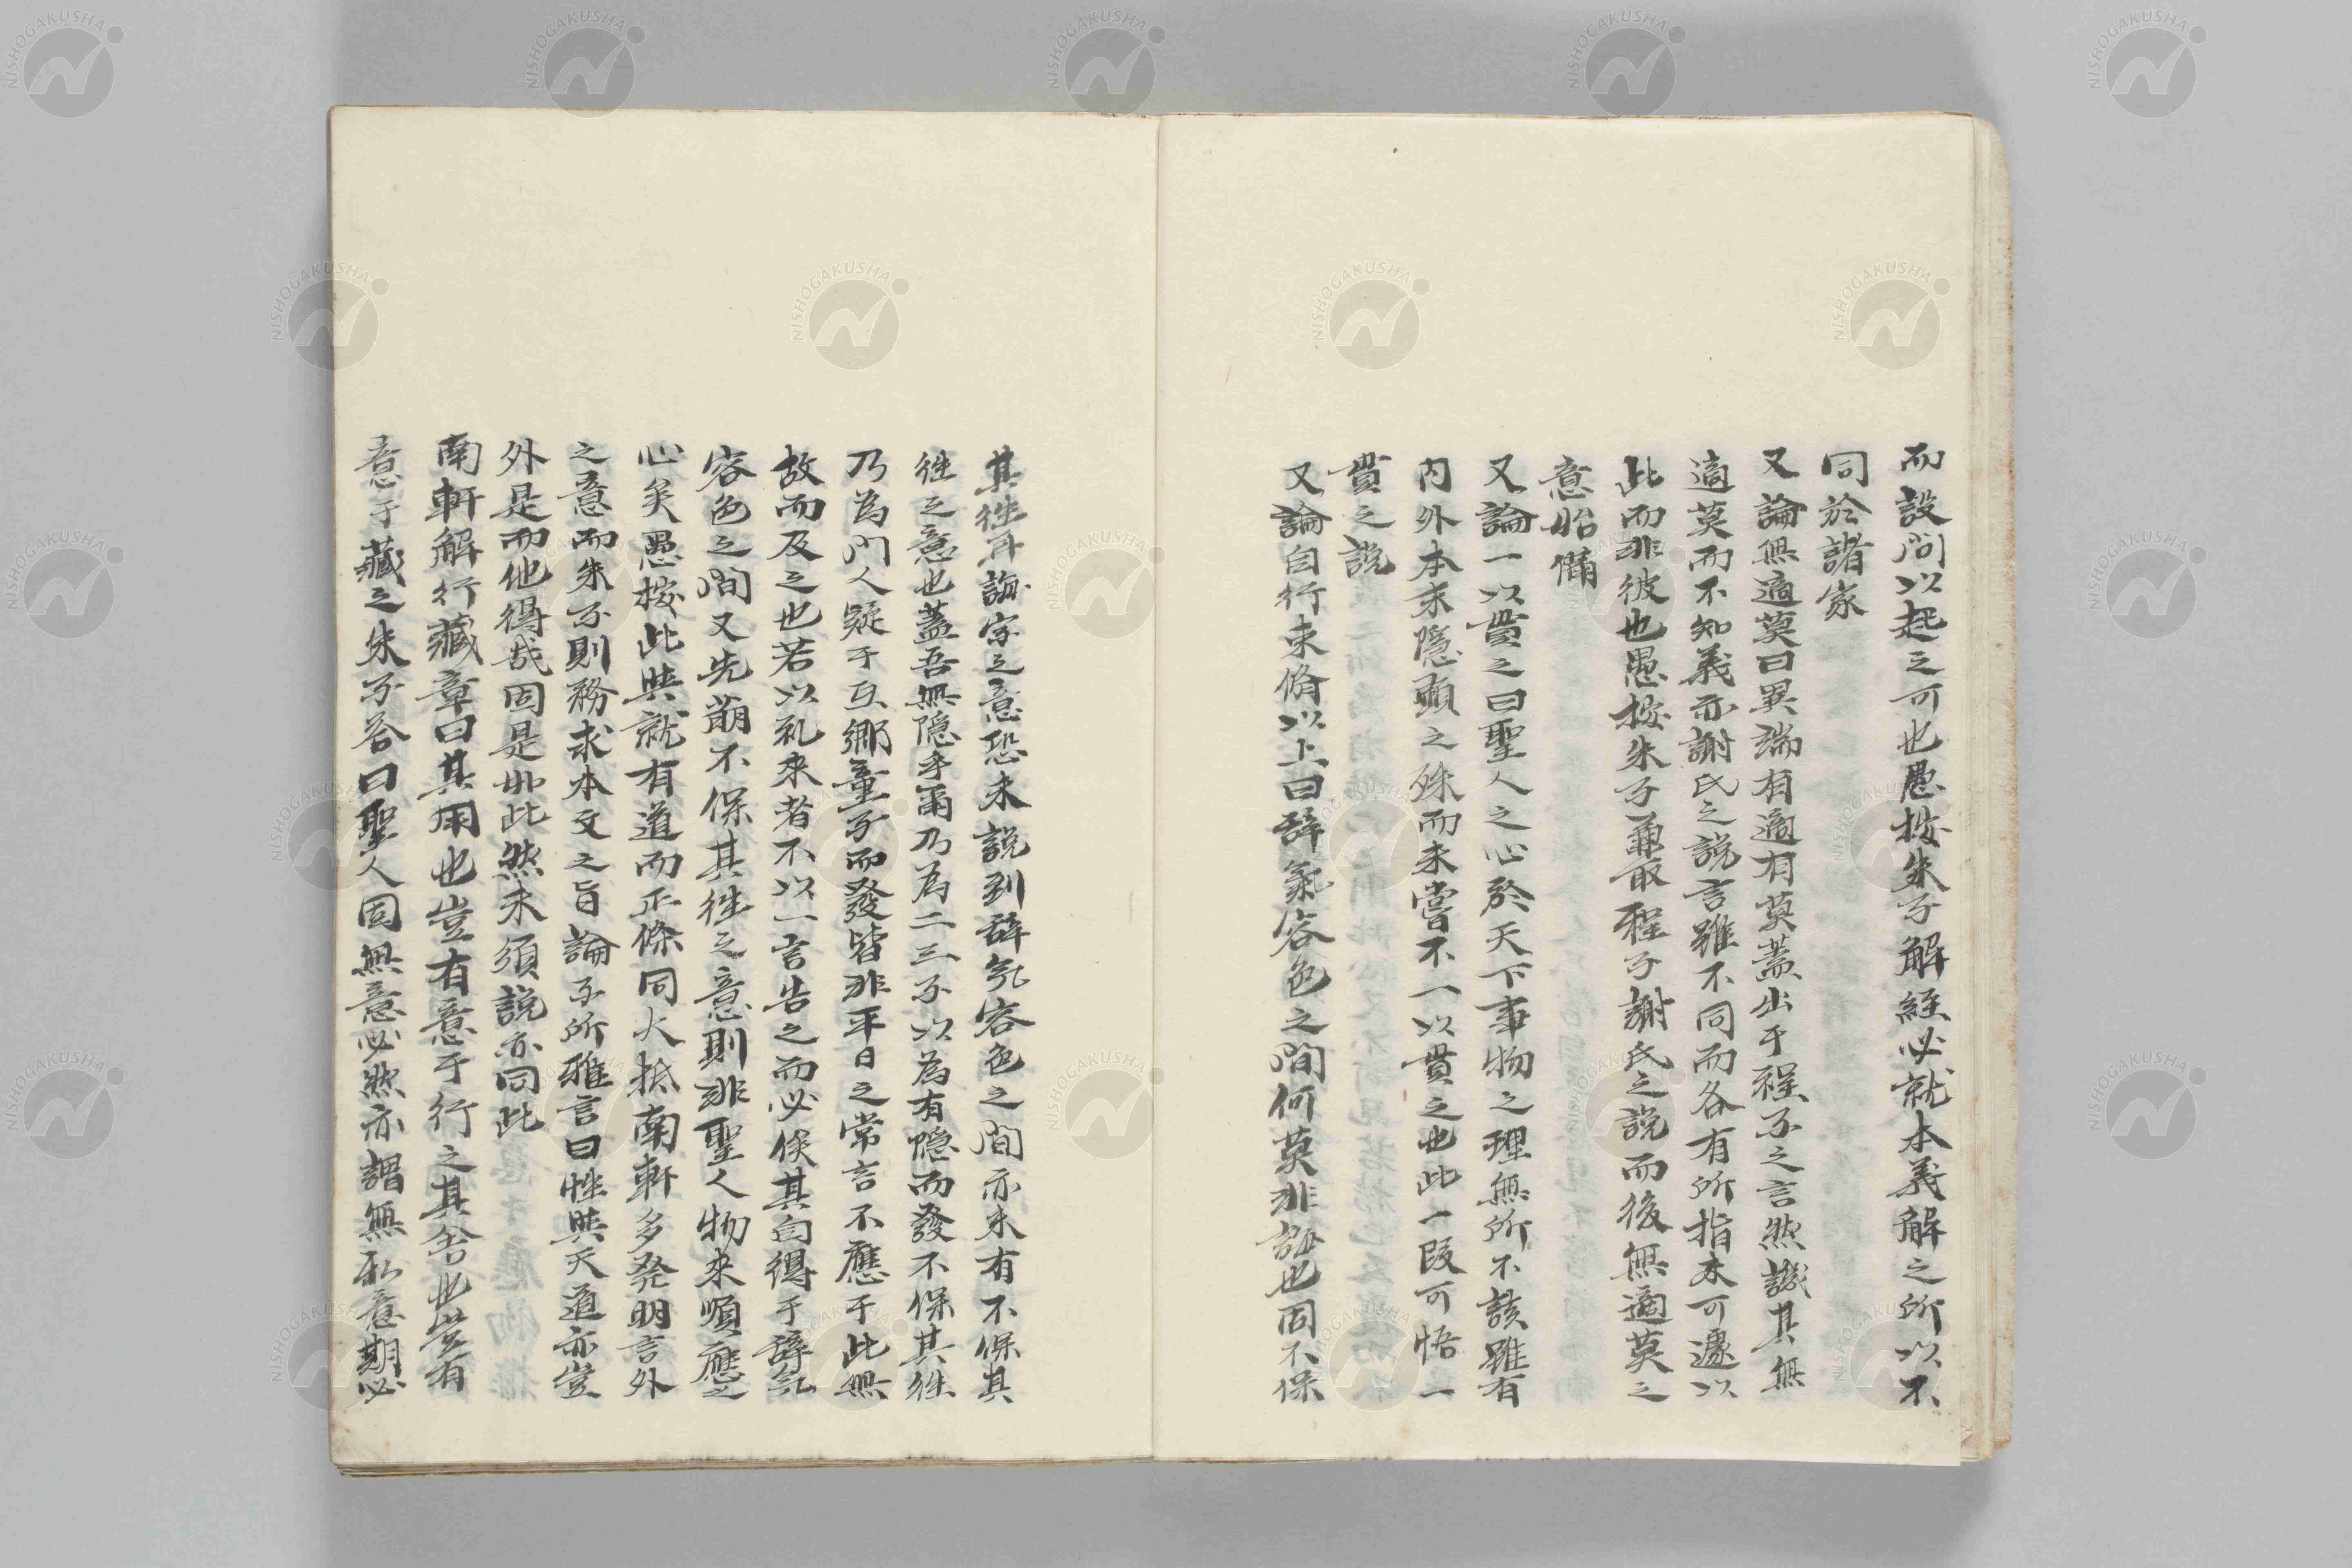 而設問以起之可也愚按朱子解経必就本義解之所以不
同於諸家
又論無適莫曰異端有適有莫蓋出于程子之言然譏其無
適莫而不知義亦謝氏之説言雖不同而各有所指未可遽以
此而非彼也愚按朱子兼取程子謝氏之説而後無適莫之
意始備
又論一以貫之曰聖人之心於天下事物之理無所不該雖有
内外本末隠顕之殊而未嘗不一以貫之也此一段可悟一
貫之説
又論自行束脩以上曰辞氣容色之間何莫非誨也固不保
其徃耳誨字之意恐未説到辞気容色之間亦未有不保其
徃之意也蓋吾無隠乎爾乃為二三子以為有隠而發不保其徃
乃為門人疑于互郷童子而發皆非平日之常言不應于此無
故而及之也若以礼来者不以一言告之而必俟其自得于辞気
容色之間又先萌不保其徃之意則非聖人物来順應之
心矣愚按此與就有道而正條同大抵南軒多発明言外
之意而朱子則務求本文之旨論子所雅言曰性與天道亦豈
外是而他得哉固是如此然未須説亦同此
南軒解行藏章曰其用也豈有意于行之其舎也豈有
意于藏之朱子答曰聖人固無意必然亦謂無私意期必
NISHOGAKUSHA